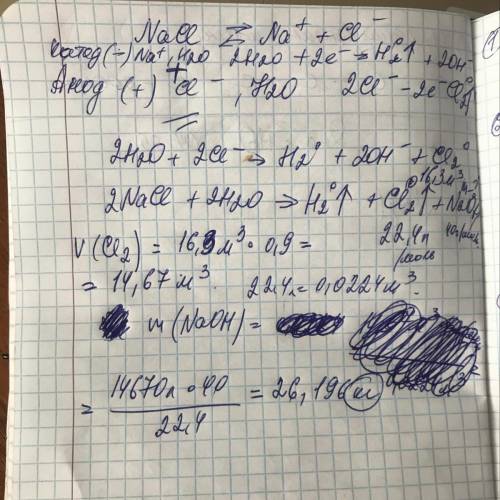 NaCl ⇄ Na⁺ + Cl⁻
Катод (-) Na⁺, H₂O 2H₂O + 2e⁻ → H₂⁰↑ + 2OH⁻
Анод (+) Cl⁻, H₂O 2Cl⁻ - 2e⁻ Cl₂⁰↑
2H₂O + 2Cl⁻ → H₂⁰ + 2OH⁻ + Cl₂⁰
16,3м³ m-?
2NaCl + 2H₂O → H₂⁰↑ + Cl₂⁰↑ + NaOH
V(Cl₂) = 16,3м³ · 0,9 = 22,4л /моль
= 14,67м³. 22,4л = 0,0224м³.
m(NaOH) =
= 14670л · 40 / 22,4 = 26,196кг